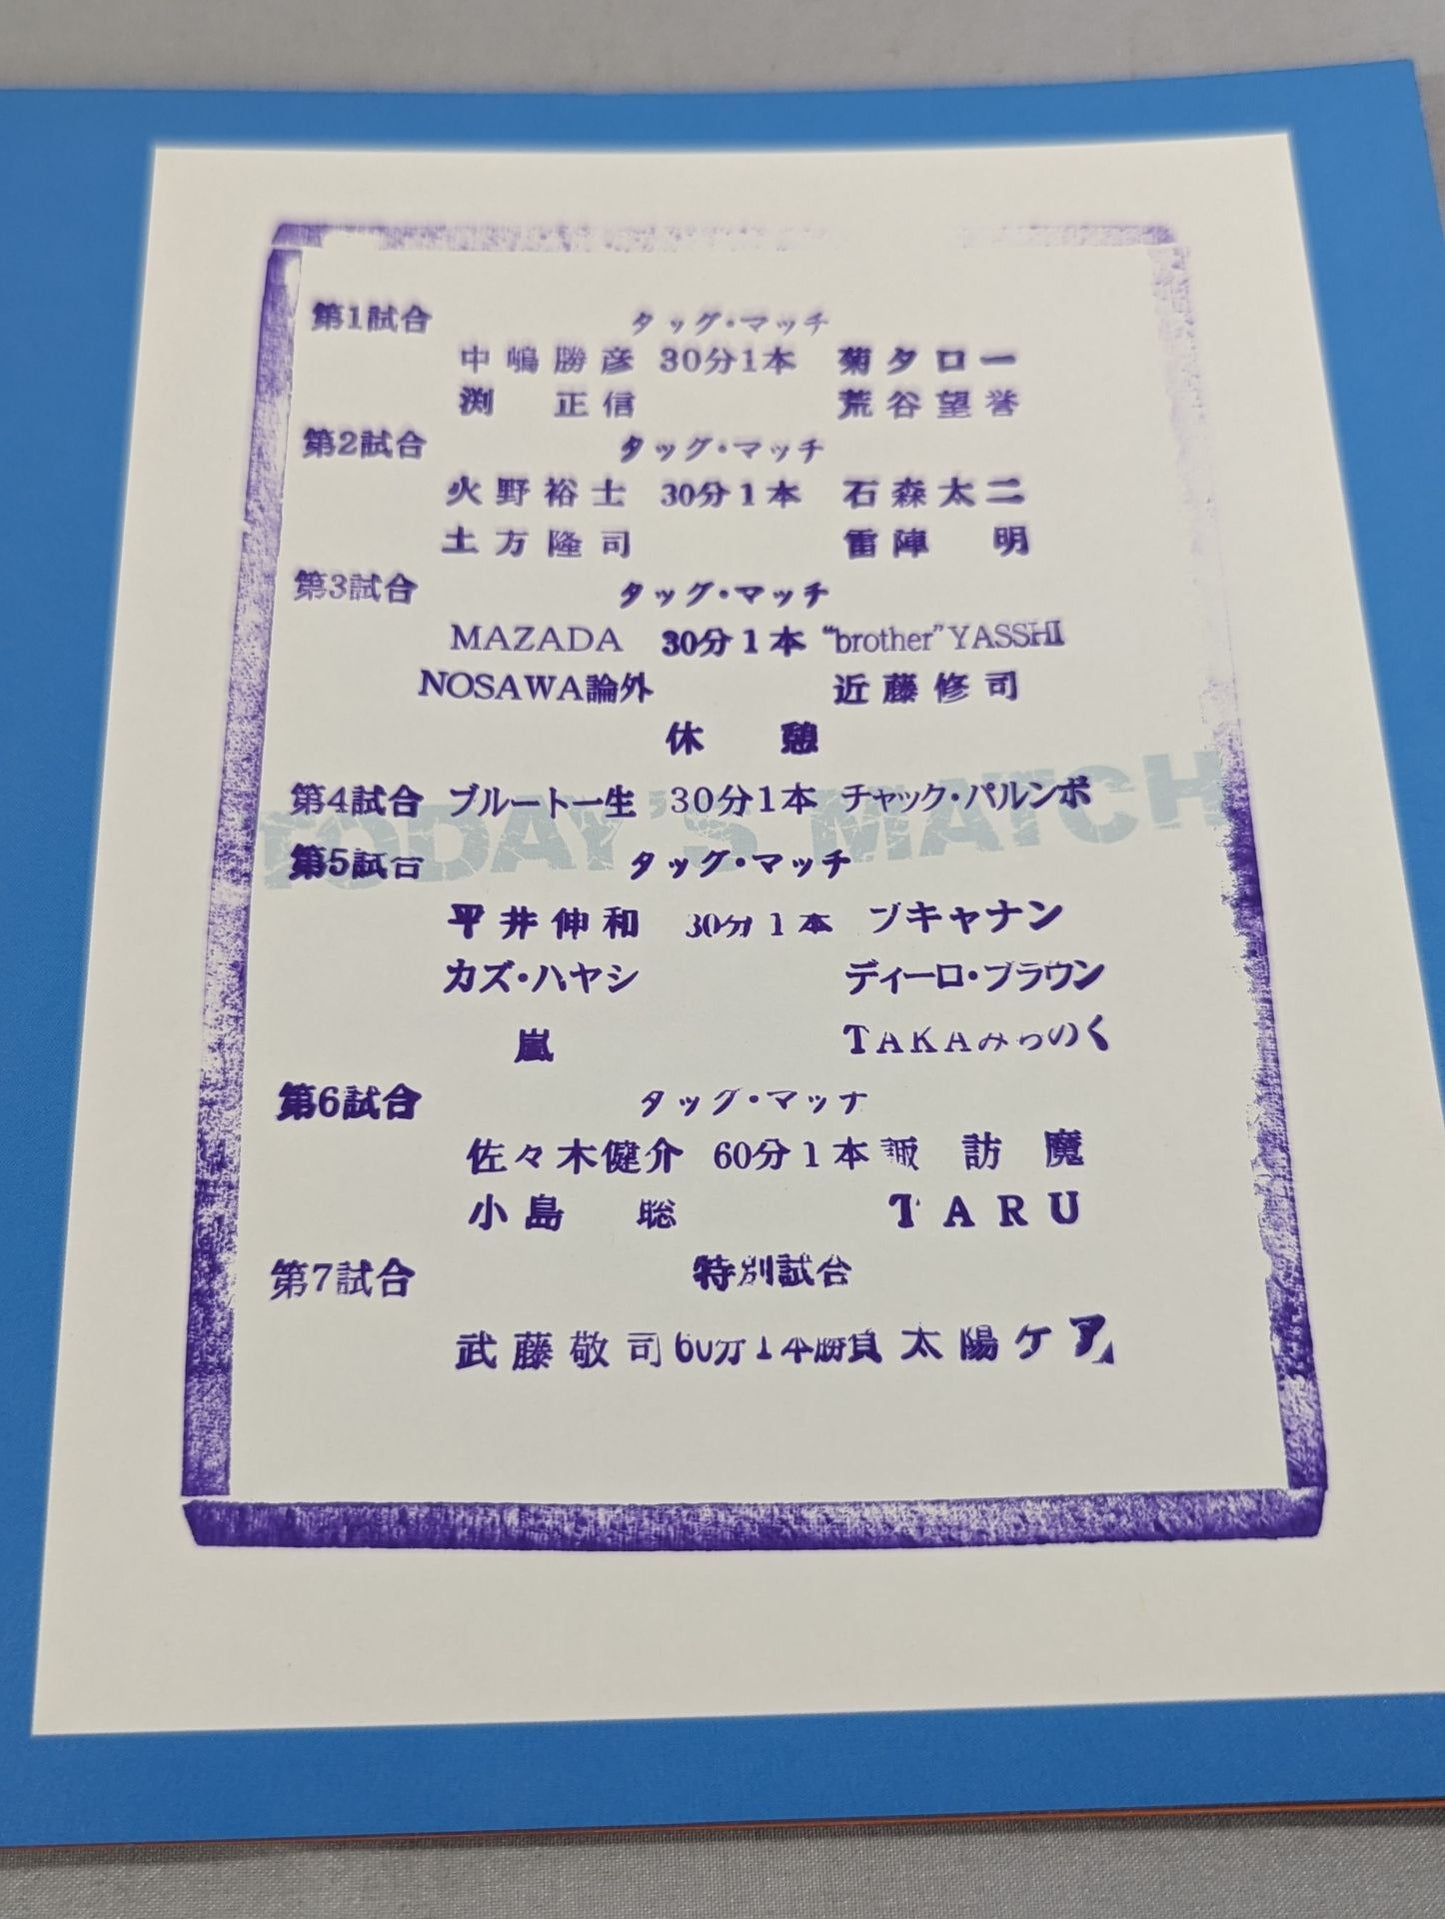 第1試合 タッグ・マッチ
中嶋勝彦 30分1本 菊タロー
渕 正信 荒谷望誉
第2試合 タッグ・マッチ
火野裕士 30分1本 石森太二
土方隆司 雷陣 明
第3試合 タッグ・マッチ
MAZADA 30分1本 “brother”YASSHI
NOSAWA論外 近藤修司
休 憩
TODAY'S MATCH
第4試合 ブルート一生 30分1本 チャック・パルンボ
第5試合 タッグ・マッチ
平井伸和 30分1本 ブキャナン
カズ・ハヤシ ディーロ・ブラウン
嵐 TAKAみちのく
第6試合 タッグ・マッチ
佐々木健介 60分1本 諏訪魔
小島 聡 TARU
第7試合 特別試合
武藤敬司 60分1本勝負 太陽ケア